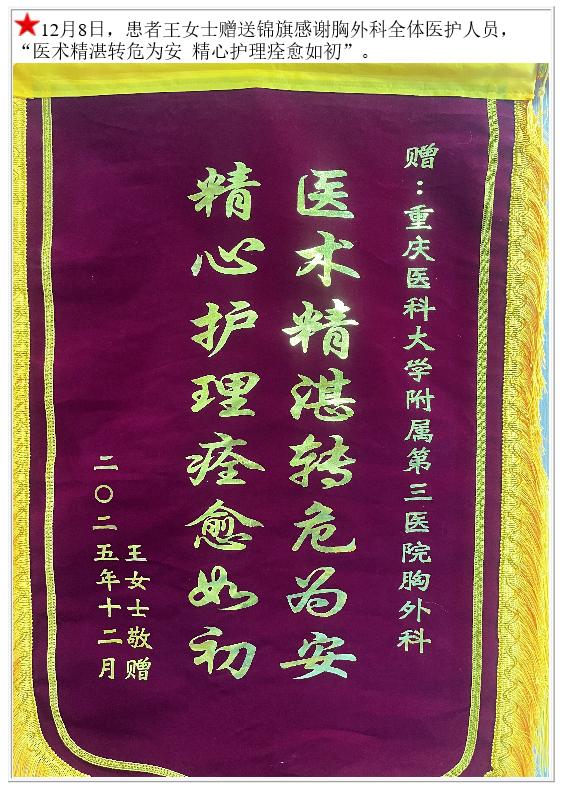 12月8日，患者王女士赠送锦旗感谢胸外科全体医护人员，
“医术精湛转危为安 精心护理痊愈如初”。
赠：重庆医科大学附属第三医院胸外科
医术精湛转危为安
精心护理痊愈如初
王女士敬赠
二〇二五年十二月